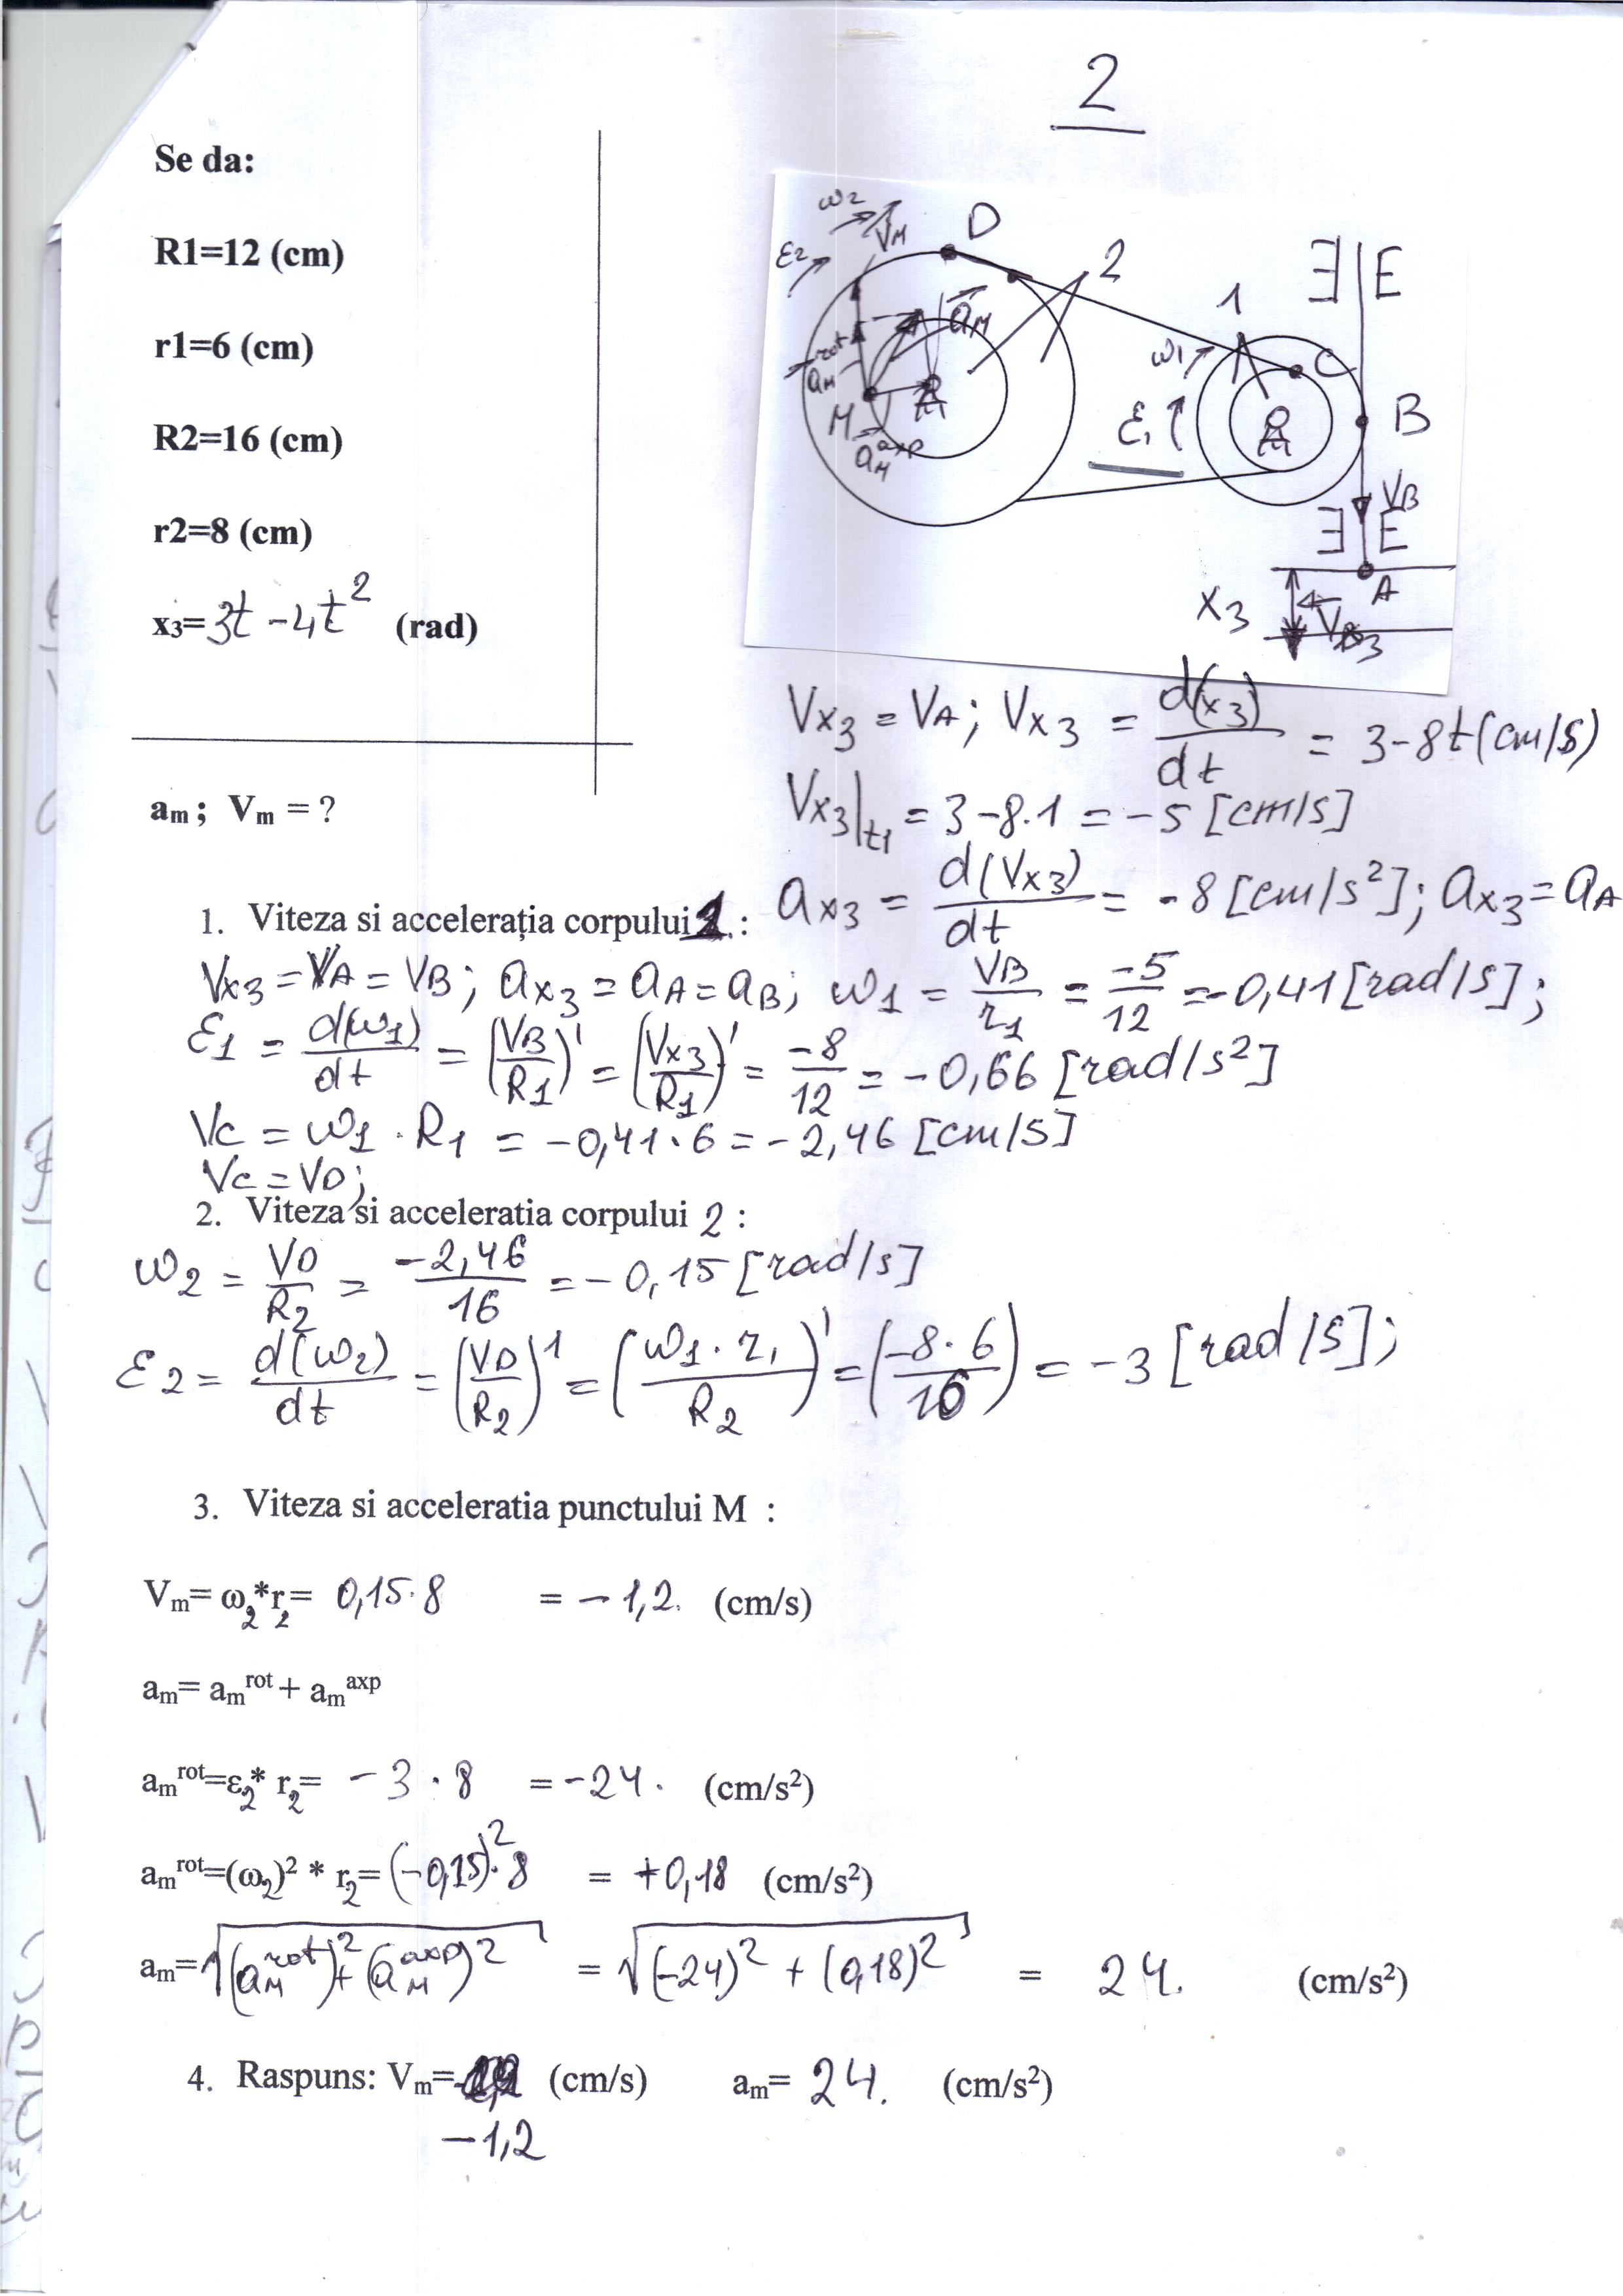 2
Se da:
R1=12 (cm)
r1=6 (cm)
R2=16 (cm)
r2=8 (cm)
x₃=3t-4t² (rad)
aₘ ; Vₘ = ?
ω2
VM
D
ε2
2
aM
aM rot
M
aM axp
1
ω1
C
ε1
B
E
VB
E
A
x3
Vx3 = VA; Vx3 = d(x3)/dt = 3-8t (cm/s)
Vx3|t1 = 3-8·1 = -5 [cm/s]
ax3 = d(Vx3)/dt = -8 [cm/s²]; ax3 = aA
1. Viteza si accelerația corpului 1 :
Vx3 = VA = VB; ax3 = aA = aB; ω1 = VB/r1 = -5/12 = -0,41 [rad/s];
ε1 = d(ω1)/dt = (VB/R1)' = (Vx3/R1)' = -8/12 = -0,66 [rad/s²]
Vc = ω1 · R1 = -0,41·6 = -2,46 [cm/s]
Vc = VD;
2. Viteza si acceleratia corpului 2 :
ω2 = VD/R2 = -2,46/16 = -0,15 [rad/s]
ε2 = d(ω2)/dt = (VD/R2)' = (ω1·r1/R2)' = (-8·6/16) = -3 [rad/s];
3. Viteza si acceleratia punctului M :
Vₘ= ω₂*r₂= 0,15·8 = -1,2. (cm/s)
aₘ= aₘʳᵒᵗ + aₘᵃˣᵖ
aₘʳᵒᵗ=ε₂* r₂= -3 · 8 = -24. (cm/s²)
aₘʳᵒᵗ=(ω₂)² * r₂= (-0,15)²·8 = +0,18 (cm/s²)
aₘ=√(aM rot)²+(aM axp)² = √(-24)² + (0,18)² = 24. (cm/s²)
4. Raspuns: Vₘ= (cm/s) aₘ= 24. (cm/s²)
-1,2